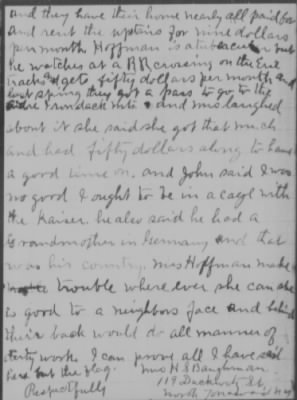 and they have their home nearly all paid for
and rent the upstairs for nine dollars
per month Hoffman is a but
he watches at a RR crossing on the Erie
track & gets fifty dollars per month and
last spring they got a pass to go to the
and mrs laughed
about it she said she got that much
and had fifty dollars along to have
a good time on. and John said I was
no good I ought to be in a cage with
the Kaiser. he also said he had a
Grandmother in Germany and that
was his country. Mrs Hoffman make
trouble where ever she can she
is good to a neighbors face and behind
their back would do all manner of
dirty work. I can prove all I have said
here but the flag. Mrs H S Baughman
Respectfully 119 St,
North